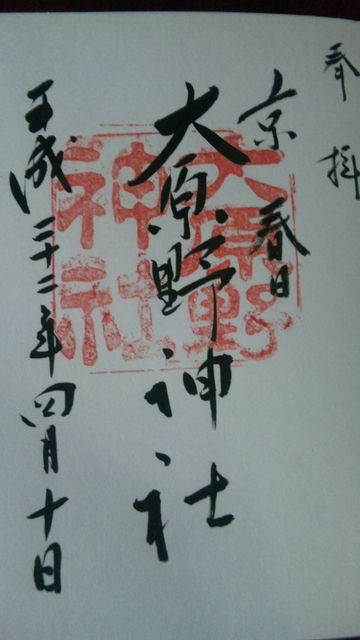 奉拝
京春日
大原野神社
平成二十二年四月十日
大原野
神社